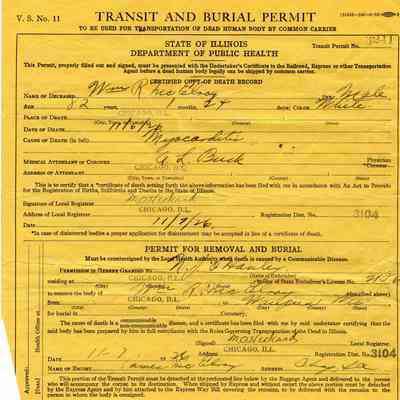 V. S. No. 11
TRANSIT AND BURIAL PERMIT
TO BE USED FOR TRANSPORTATION OF DEAD HUMAN BODY BY COMMON CARRIER
STATE OF ILLINOIS Transit Permit No.
DEPARTMENT OF PUBLIC HEALTH
This Permit, properly filled out and signed, must be presented with the Undertaker's Certificate to the Railroad, Express or other Transportation
Agent before a dead human body legally can be shipped by common carrier.
CERTIFIED COPY OF DEATH RECORD
NAME OF DECEASED Wm R McElroy Male
AGE 82 years, months, 24 SEX; COLOR White
PLACE OF DEATH CHICAGO, ILL.
(City, Town or Township) (County)
DATE OF DEATH 11/6/26
CAUSE OF DEATH (in full) Myocarditis
MEDICAL ATTENDANT OR CORONER A L Buck Physician
ADDRESS OF ATTENDANT CHICAGO, ILL. Coroner
(City, Town or Township) (State)
This is to certify that a certificate of death setting forth the above information has been filed with me in accordance with An Act to Provide
for the Registration of Births, Stillbirths and Deaths in the State of Illinois.
Signature of Local Registrar
Address of Local Registrar CHICAGO, ILL. Registration Dist. No. 3104
11/7/26
*In case of disinterred bodies a proper application for disinterment may be accepted in lieu of a certificate of death.
PERMIT FOR REMOVAL AND BURIAL
Must be countersigned by the Local Health Authority when death is caused by a Communicable Disease.
PERMISSION IS HEREBY GRANTED
residing at CHICAGO, ILL.
to remove the body of
from CHICAGO, ILL.
for burial in Cemetery.
The cause of death is a communicable non-communicable disease, and a certificate has been filed with me by said undertaker certifying that
the said body has been prepared by him in full compliance with the Rules Governing Transportation of the Dead in Illinois.
(Signed) Local Registrar
CHICAGO, ILL.
DATE 11-7 26 Registration Dist. No. 3104
NAME OF ESCORT James McElroy
This portion of the Transit Permit must be detached at the perforated line below by the Baggage Agent and delivered to the person
who will accompany the corpse to its destination. When shipped by Express and without escort the above portion must be detached
by the Express Agent and by him attached to the Express Way Bill covering the remains, to be delivered with the remains to the
person to whom the body is consigned.
Health Officer at
Approved